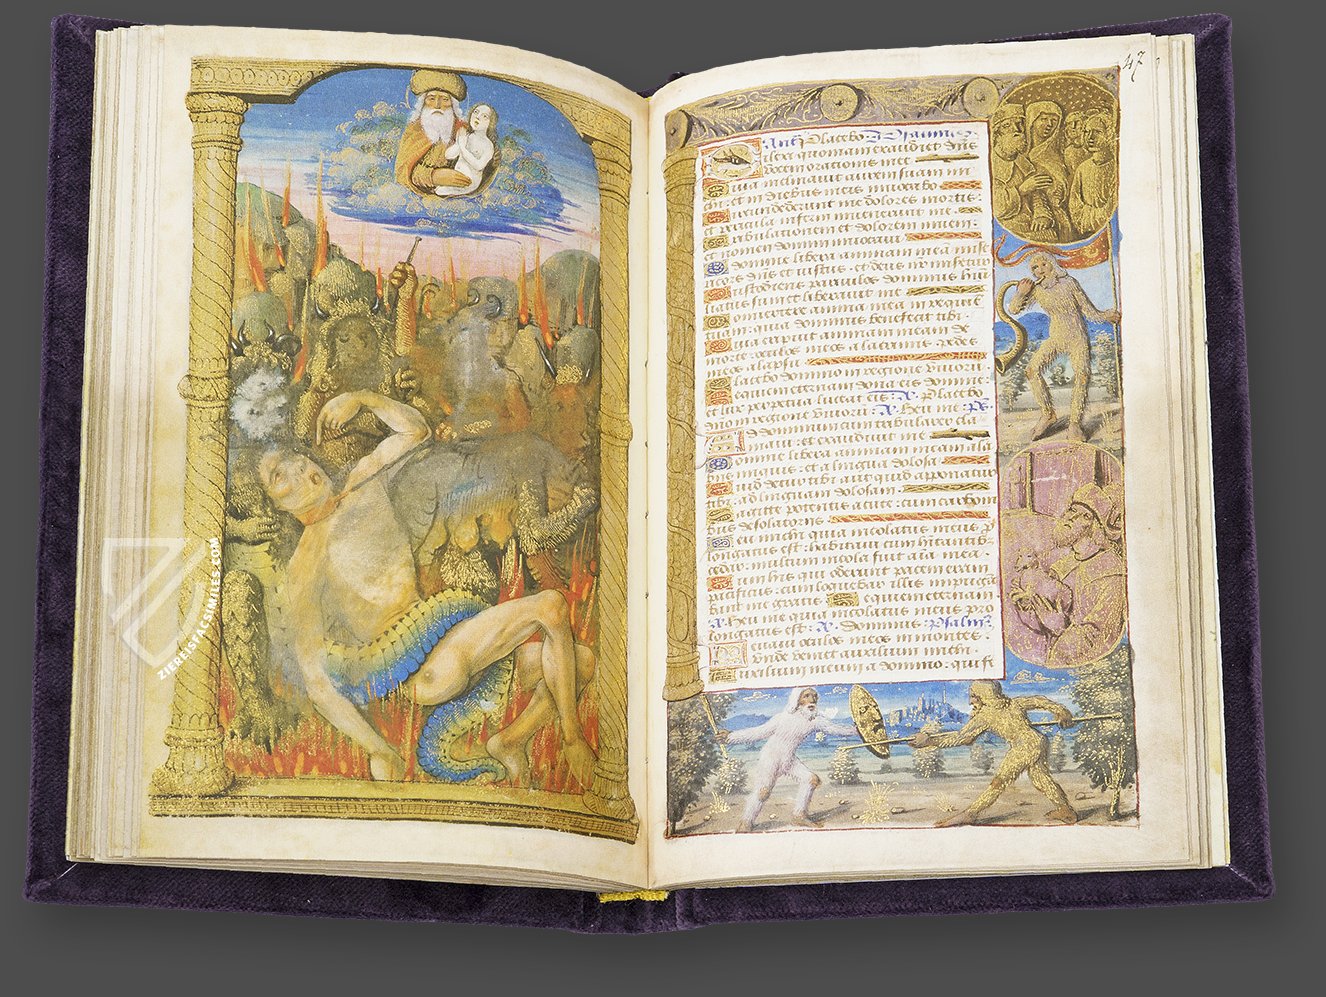 47
Ant. Placebo. Psalmus
ilexi quoniam exaudiet dns
vocem orationis mee
uia inclinauit aurem suam mi
chi: et in diebus meis inuocabo
ircundederunt me dolores mortis:
et pericula inferni inuenerunt me.
ribulationem et dolorem inueni:
et nomen domini inuocaui.
domine libera animam meã mise
ricors dñs et iustus. et deus nr̃ miseretur
ustodiens paruulos dominus hu
liatus sum et liberauit me
onuertere anima mea in requiẽ
tuam: quia dominus benefecit tibi.
uia eripuit animam meam de
morte: oculos meos a lacrimis: pedes
meos a lapsu.
lacebo domino in regione viuorũ
equiem eternam dona eis domine.
et lux perpetua luceat eis. A. Placebo
mino in regione viuorũ. A. Heu me. ps.
d dominum cum tribularer cla
maui: et exaudiuit me
omine libera animam meam a la
bijs iniquis: et a lingua dolosa.
uid detur tibi aut quid apponatur
tibi: ad linguam dolosam.
agitte potentis acute: cum carbonib
bus desolatorijs
eu michi quia incolatus meus p
longatus est: habitaui cum hĩtantib
cedar: multum incola fuit aĩa mea.
um his qui oderunt pacem eram
pacificus: cum loquebar illis impugã
bant me gratis. equiem eternam
A. Heu me quia incolatus meus pro
longatus est. A. dominus Psalm
euaui oculos meos in montes.
vnde veniet auxilium michi.
uxilium meum a domino: qui fe
ZIEREISFACSIMILES.COM